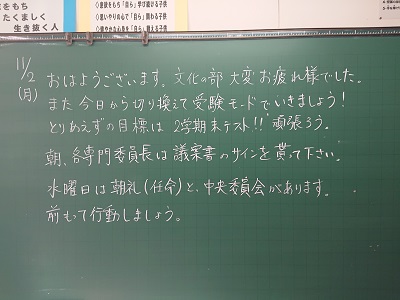 をもち
たくましく
生き抜く人
○意欲をもち「自ら」学び続ける子供
○思いやりの心で「自ら」関わる子供
11/2
(月)
おはようございます。文化の部 大変お疲れ様でした。
また今日から切り換えて受験モードでいきましょう!
とりあえずの目標は2学期末テスト!! 頑張ろう。
朝、各専門委員長は議案書のサインを貰って下さい。
水曜日は朝礼(任命)と、中央委員会があります。
前もて行動しましょう。